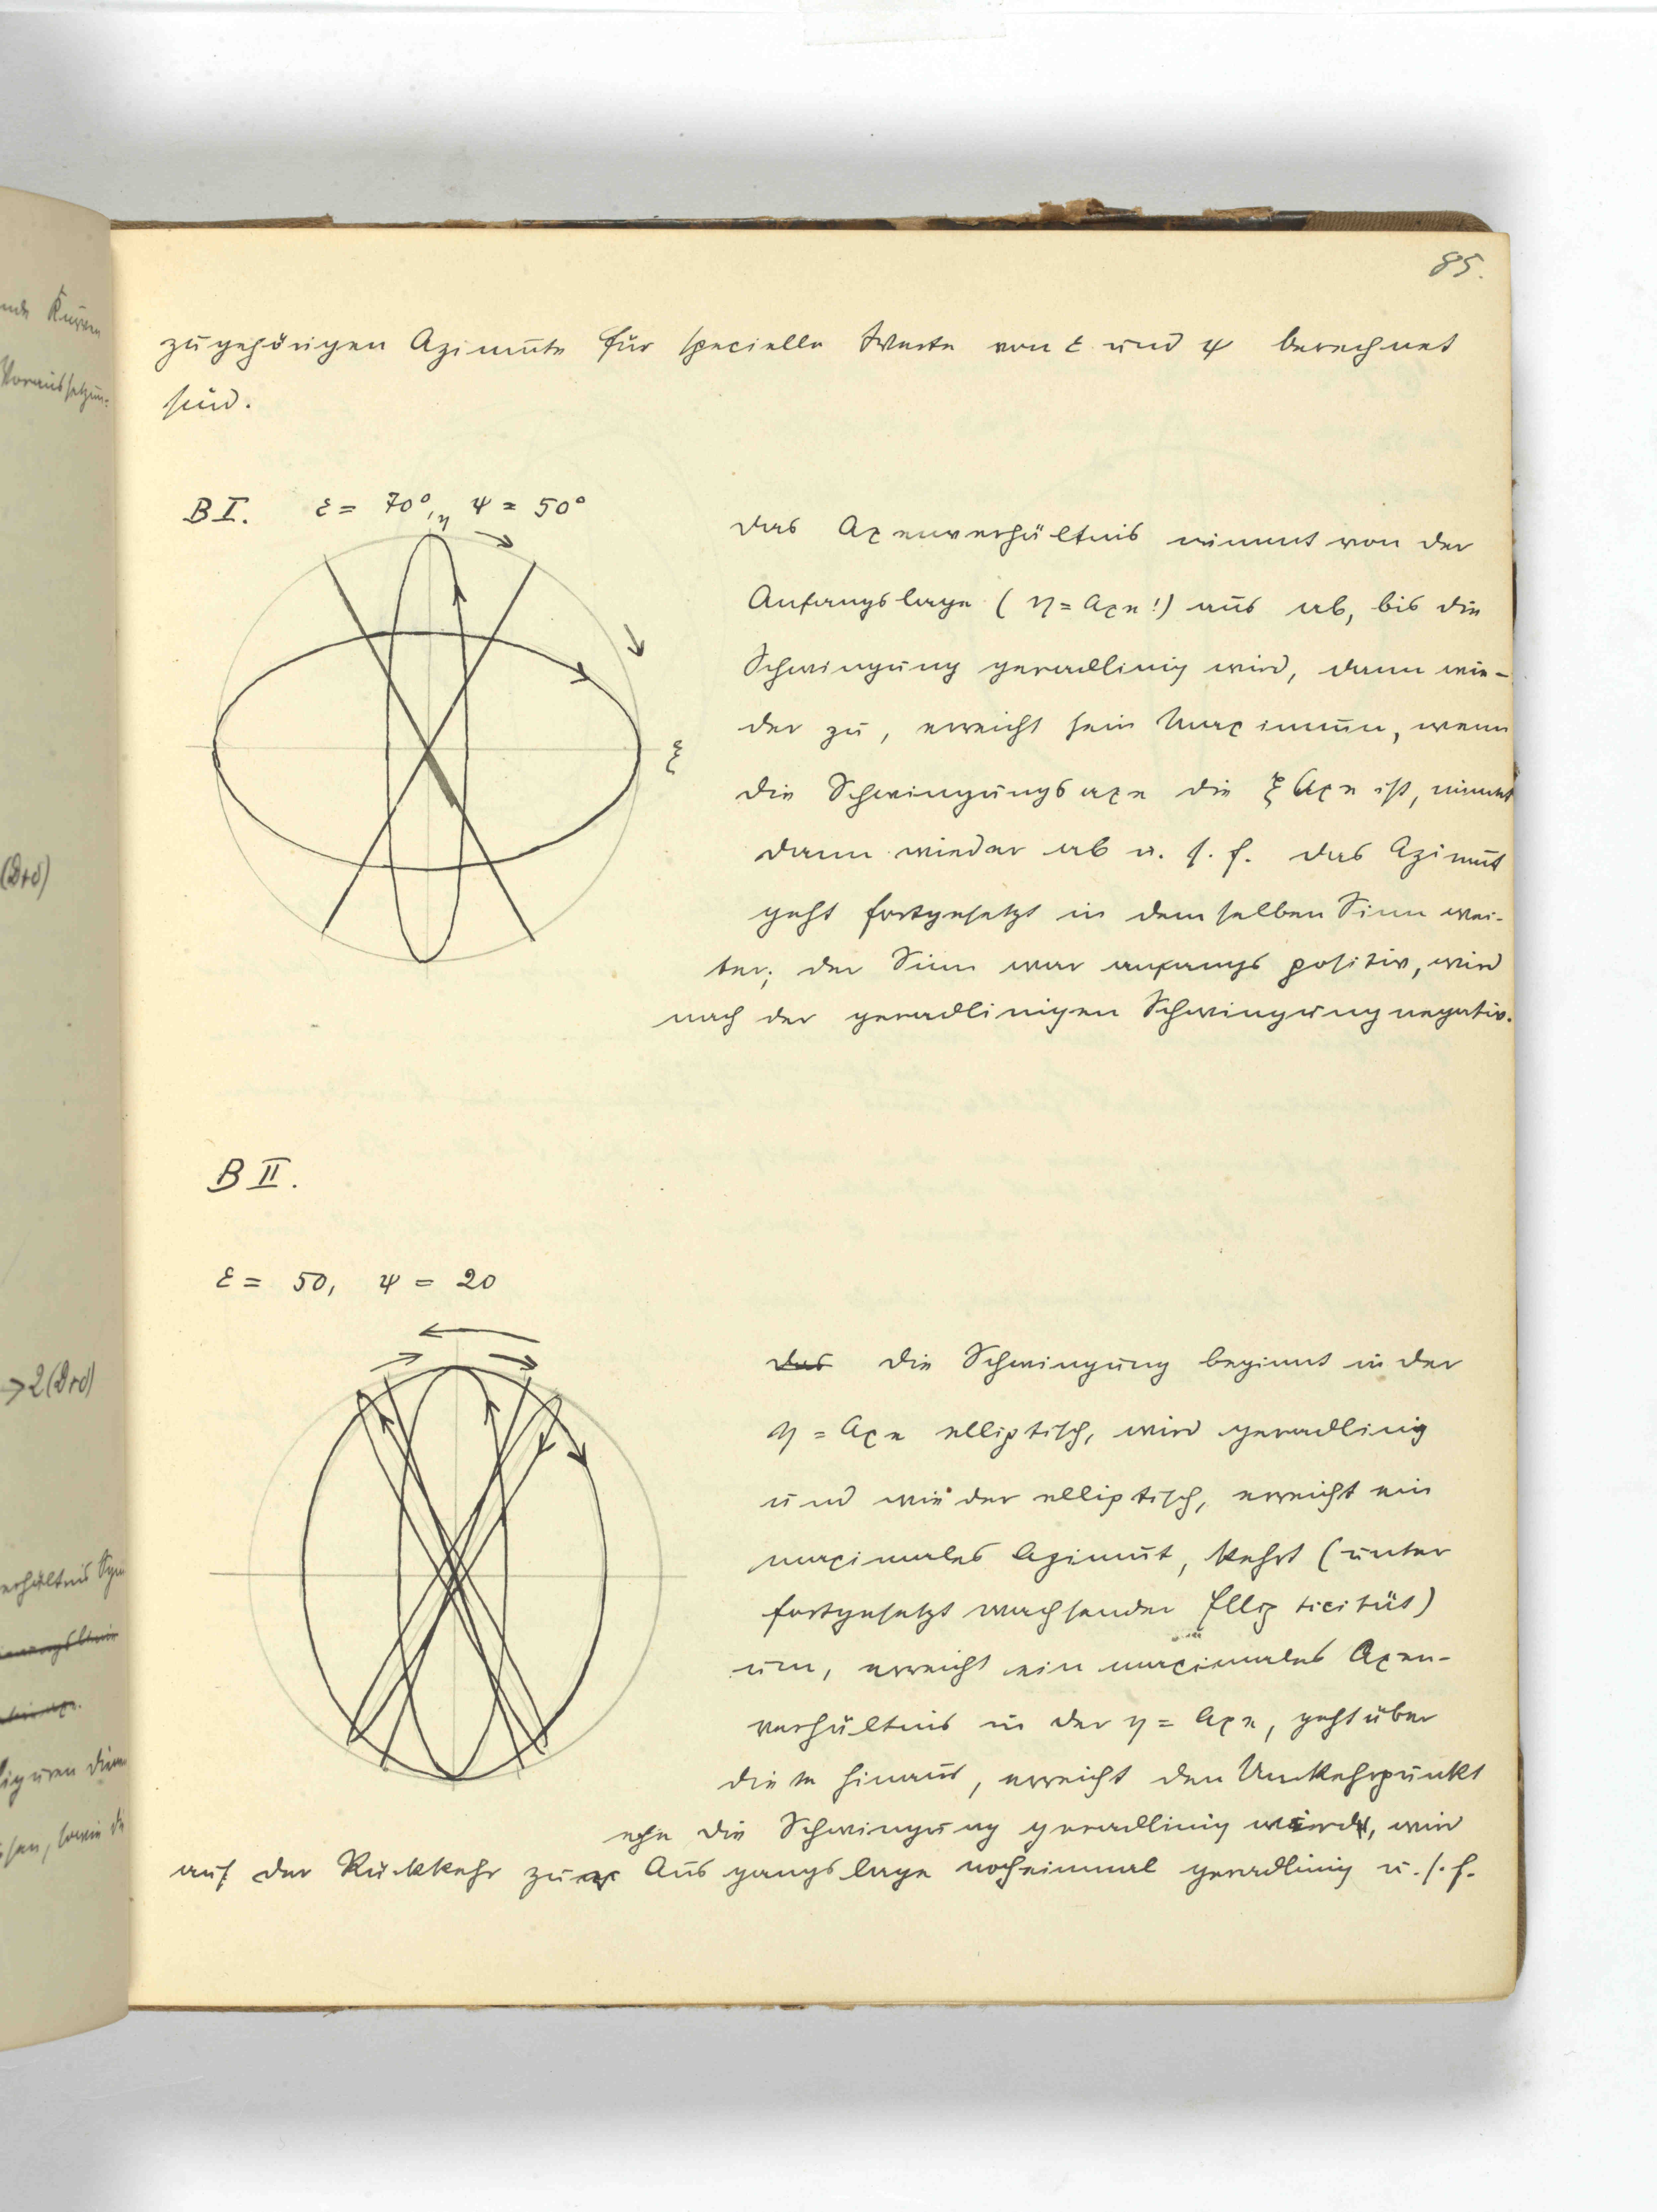 85.
zugehörigen Azimute für specielle Werte von ε und ψ berechnet
sind.
B I. ε = 70°, ψ = 50°
η
ξ
Das Axenverhältnis nimmt von der
Anfangslage (η = Axe!) aus ab, bis die
Schwingung geradlinig wird, dann wie-
der zu, erreicht sein Maximum, wenn
die Schwingungsaxe die ξ Axe ist, nimmt
dann wieder ab u. s. f. Das Azimut
geht fortgesetzt in dem selben Sinn wei-
ter; der Sinn war anfangs positiv, wird
nach der geradlinigen Schwingung negativ.
B II.
ε = 50, ψ = 20
Das Die Schwingung beginnt in der
η = Axe elliptisch, wird geradlinig
und wieder elliptisch, erreicht ein
maximales Azimut, kehrt (unter
fortgesetzt wachsender Ellipticität)
um, erreicht ein maximales Axen-
verhältnis in der η = Axe, geht über
diese hinaus, erreicht den Umkehrpunkt
ehe die Schwingung geradlinig wird, wird
auf der Rückkehr zur Ausgangslage nocheinmal geradlinig u. s. f.
nde Kurven
Voraussetzun-
(Drd)
→2(Drd)
erhältnis
iguren
sen, sowie di